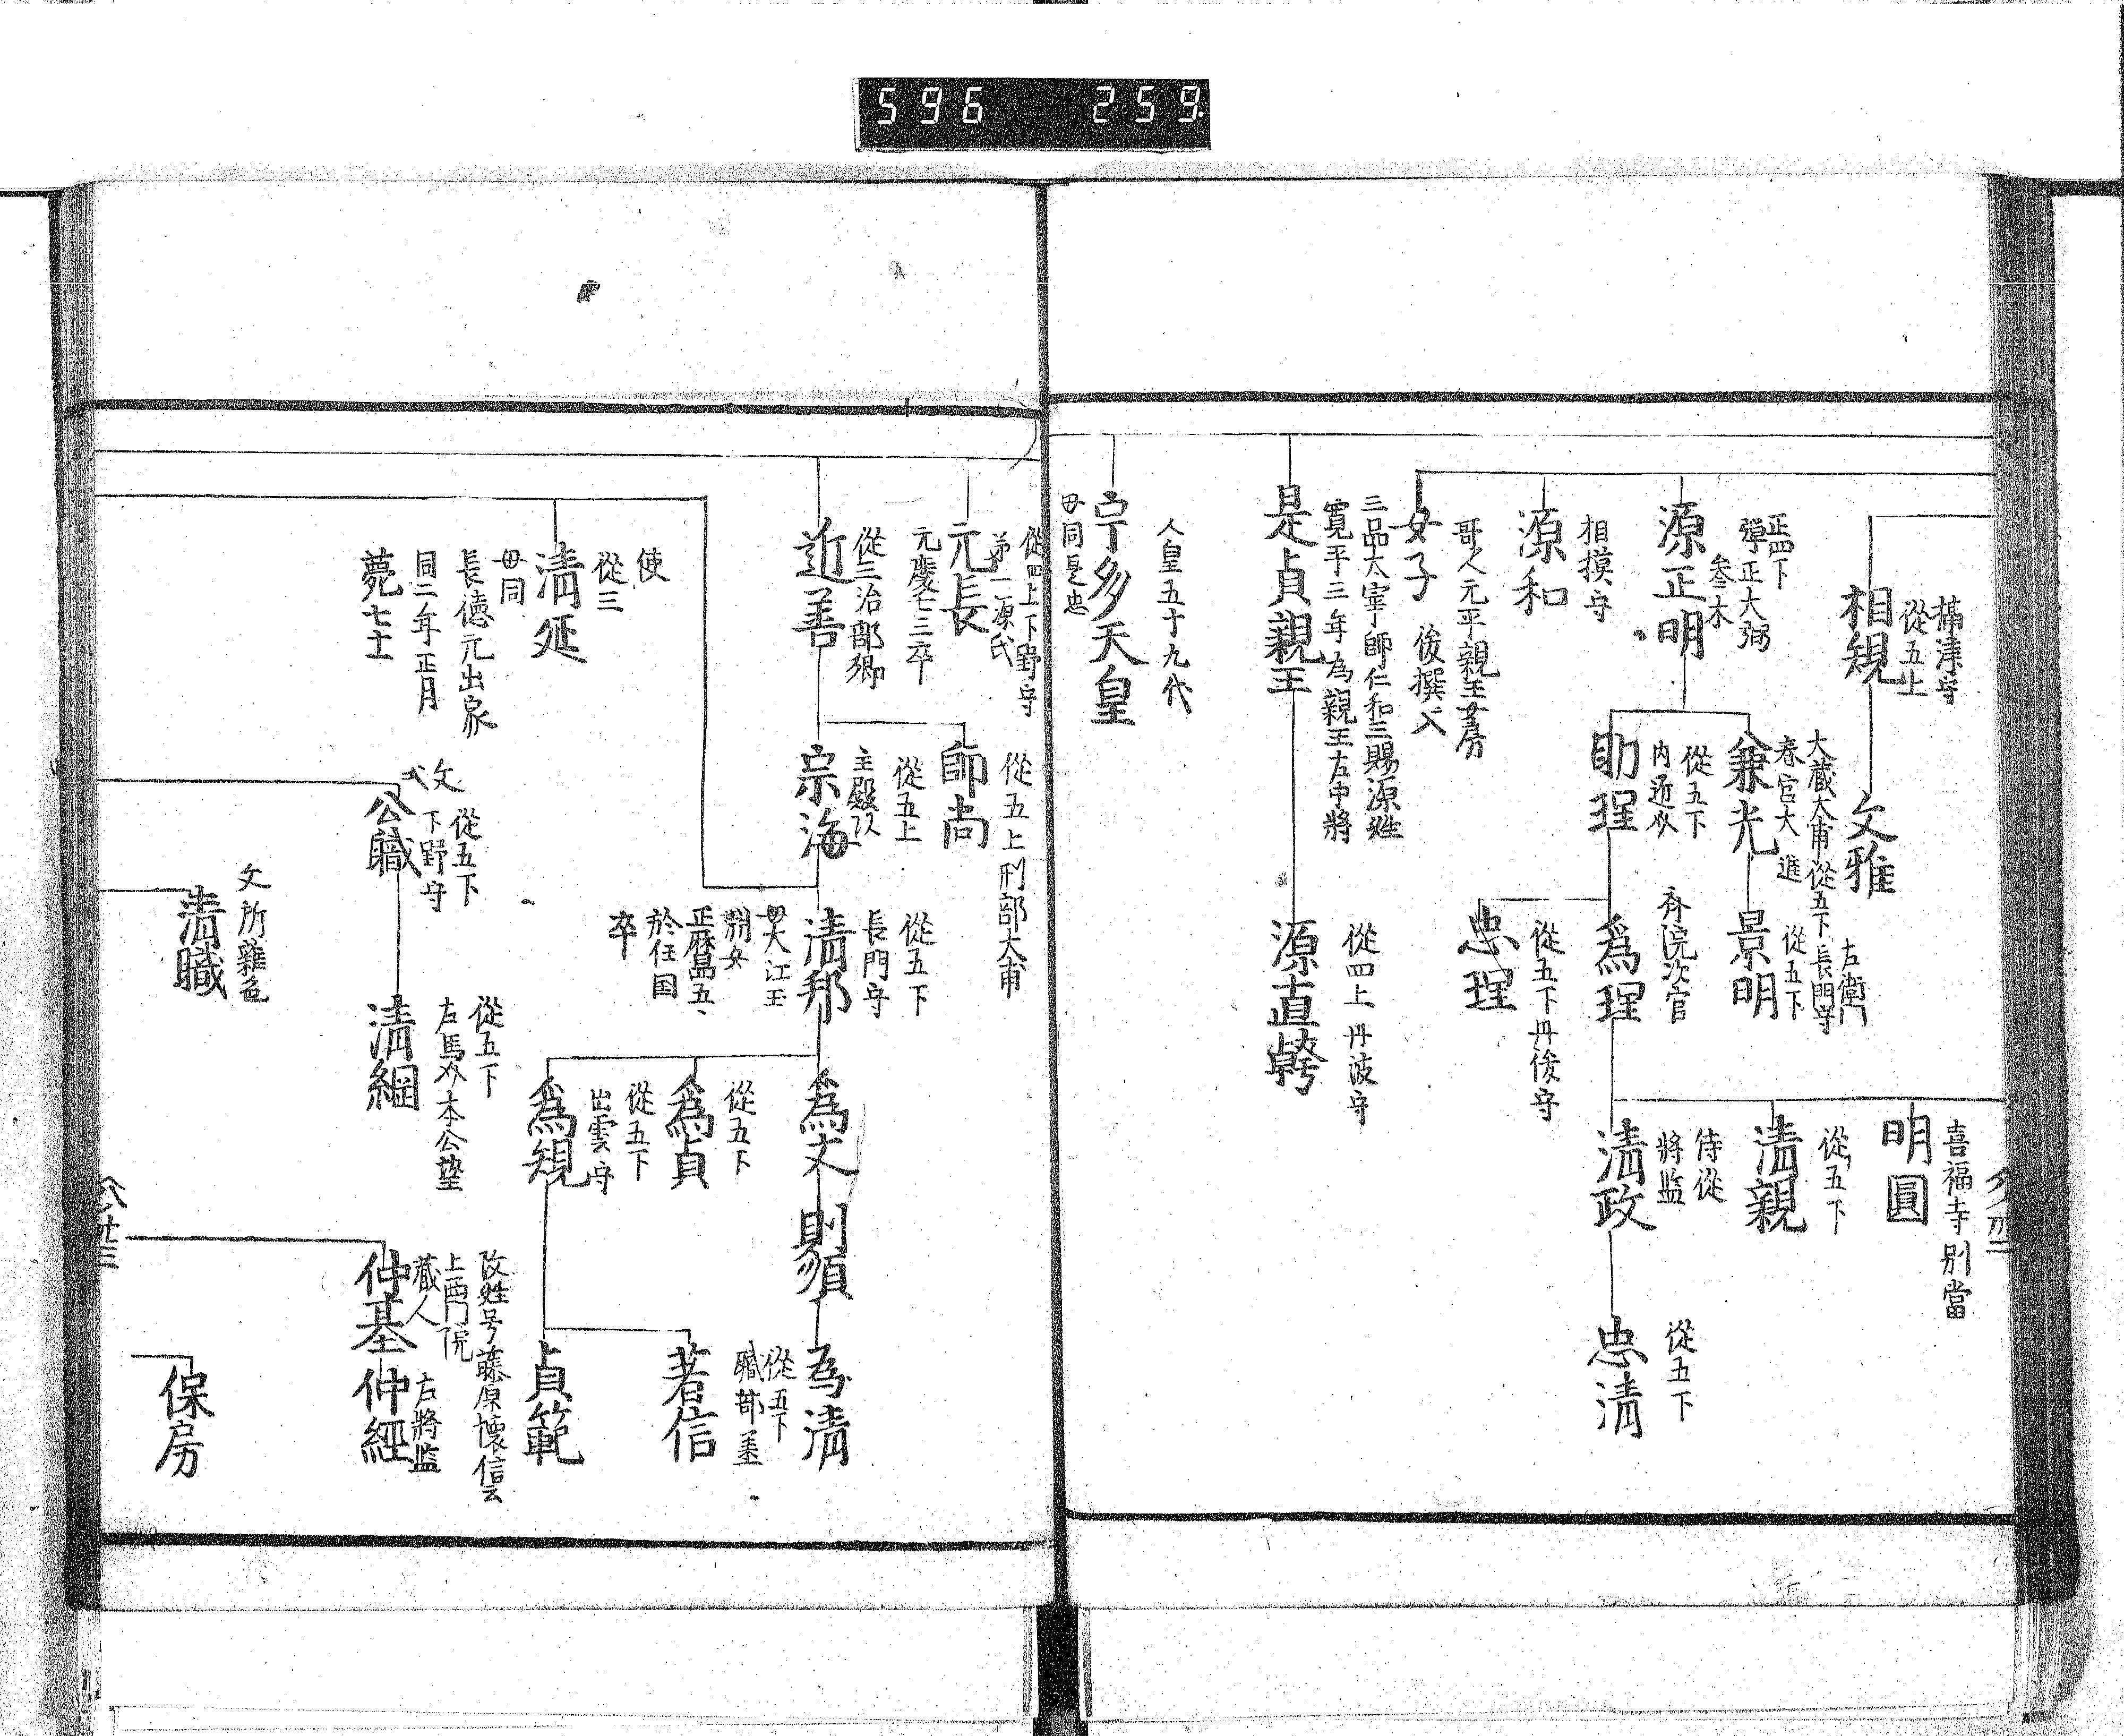 596 259
攝津守
從五上
相規
文雅
正四下
彈正大弼
叅木
源正明
大蔵大甫從五下長門守
春宮大進
兼光
左衛門
從五下
景明
從五下
内近
助理
斉院次官
為理
從五下丹後守
忠理
喜福寺別當
明圓
從五下
清親
侍從
將监
清政
從五下
忠清
相摸守
源和
哥人元平親王
女子
後撰入
三品太宰帥仁和三賜源姓
寛平三年為親王右中將
是貞親王
從四上丹波守
源直幹
人皇五十九代
宇多天皇
母同是忠
從四上下野守
第一源氏
元長
元慶七三卒
從三治部卿
近善
從五上刑部大甫
師尚
從五上
主殿
宗海
從五下
長門守
清邦
母大江玉
渕女
正暦五
於任国
卒
為文
則頼
為清
從五下
為貞
從五下
出雲守
為規
從五下
若信
貞範
使
從三
清延
母同
長徳元出家
同二年正月
薨七十
從五下
下野守
公職
從五下
右馬 本公望
清綱
改姓号藤原懐信云
上西門院
蔵人
仲基
右將监
仲經
文所雜色
清職
保房